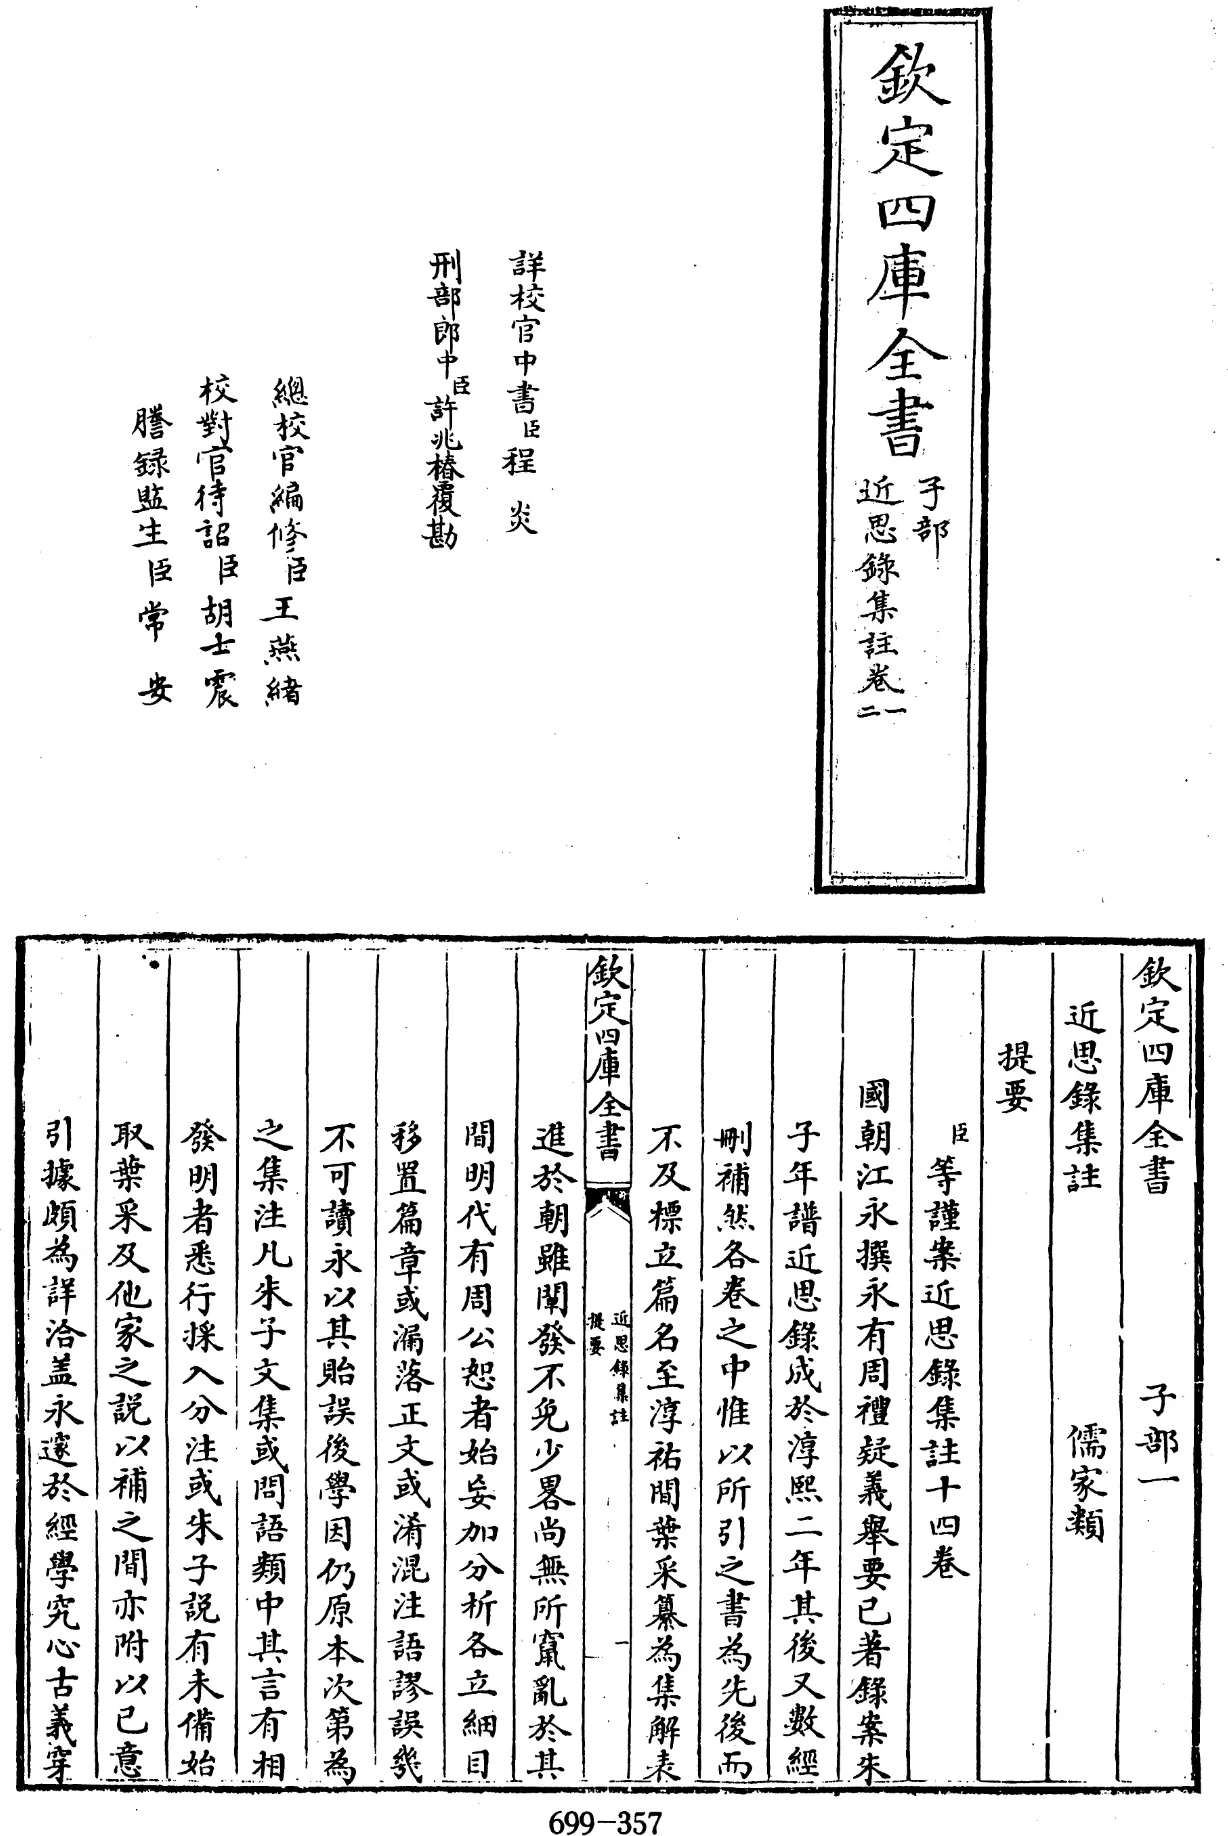 欽定四庫全書
子部
近思錄集註卷一
二
詳校官中書臣程炎
刑部郎中臣許兆椿覆勘
總校官編修臣王燕緒
校對官待詔臣胡士震
謄録監生臣常安
欽定四庫全書 子部一
近思錄集註 儒家類
提要
臣等謹案近思錄集註十四卷
國朝江永撰永有周禮疑義舉要已著錄案朱
子年譜近思錄成於淳熙二年其後又數經
刪補然各卷之中惟以所引之書為先後而
不及標立篇名至淳祐間葉采纂為集解表
欽定四庫全書
近思錄集註
提要
一
進於朝雖闡發不免少畧尚無所竄亂於其
間明代有周公恕者始妄加分析各立細目
移置篇章或漏落正文或淆混注語謬誤幾
不可讀永以其貽誤後學因仍原本次第為
之集注凡朱子文集或問語類中其言有相
發明者悉行採入分注或朱子說有未備始
取葉采及他家之說以補之間亦附以己意
引據頗為詳洽盖永邃於經學究心古義穿
699-357